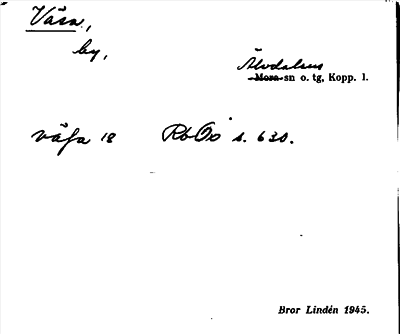 Våsa,
by,
Älvdalens
Mora-sn o. tg, Kopp. l.
våsa 18 RbÖo s. 630.
Bror Lindén 1945.